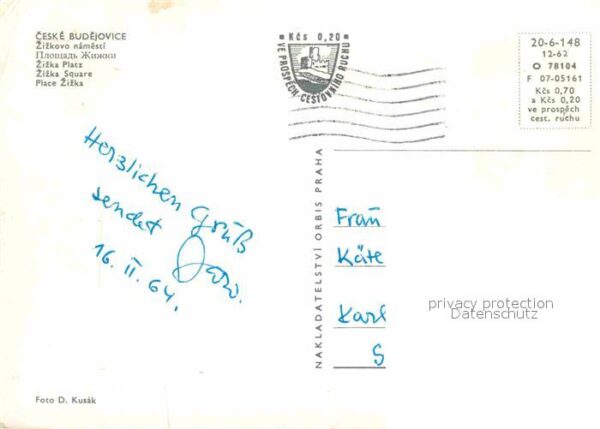 ČESKÉ BUDĚJOVICE
Žižkovo náměstí
Площадь Жижки
Žižka Platz
Žižka Square
Place Žižka
Kčs 0,20
VE PROSPĚCH CESTOVNÍHO RUCHU
20-6-148
12-62
O 78104
F 07-05161
Kčs 0,70
a Kčs 0,20
ve prospěch
cest. ruchu
Herzlichen Gruß
sendet
16. II. 64.
NAKLADATELSTVÍ ORBIS PRAHA
Frau
Käte
Karl
S
privacy protection
Datenschutz
Foto D. Kusák